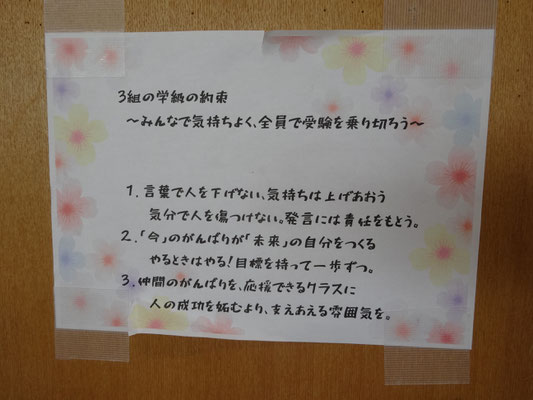 3組の学級の約束
～みんなで気持ちよく、全員で受験を乗り切ろう～
1.言葉で人を下げない、気持ちは上げあおう
気分で人を傷つけない。発言には責任をもとう。
2.「今」のがんばりが「未来」の自分をつくる
やるときはやる!目標を持って一歩ずつ。
3.仲間のがんばりを、応援できるクラスに
人の成功を妬むより、支えあえる雰囲気を。